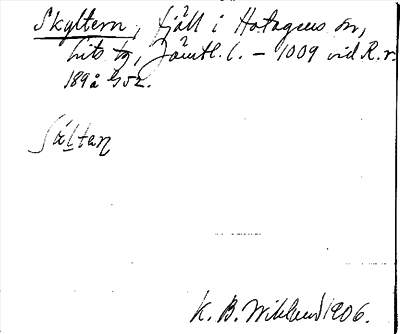 Skyltern, fjäll i Hotagens sn,
Lits tg, Jämtl. l. – 1009 vid R.r.
189 å
Sæltan
K. B. Wiklund 1906.